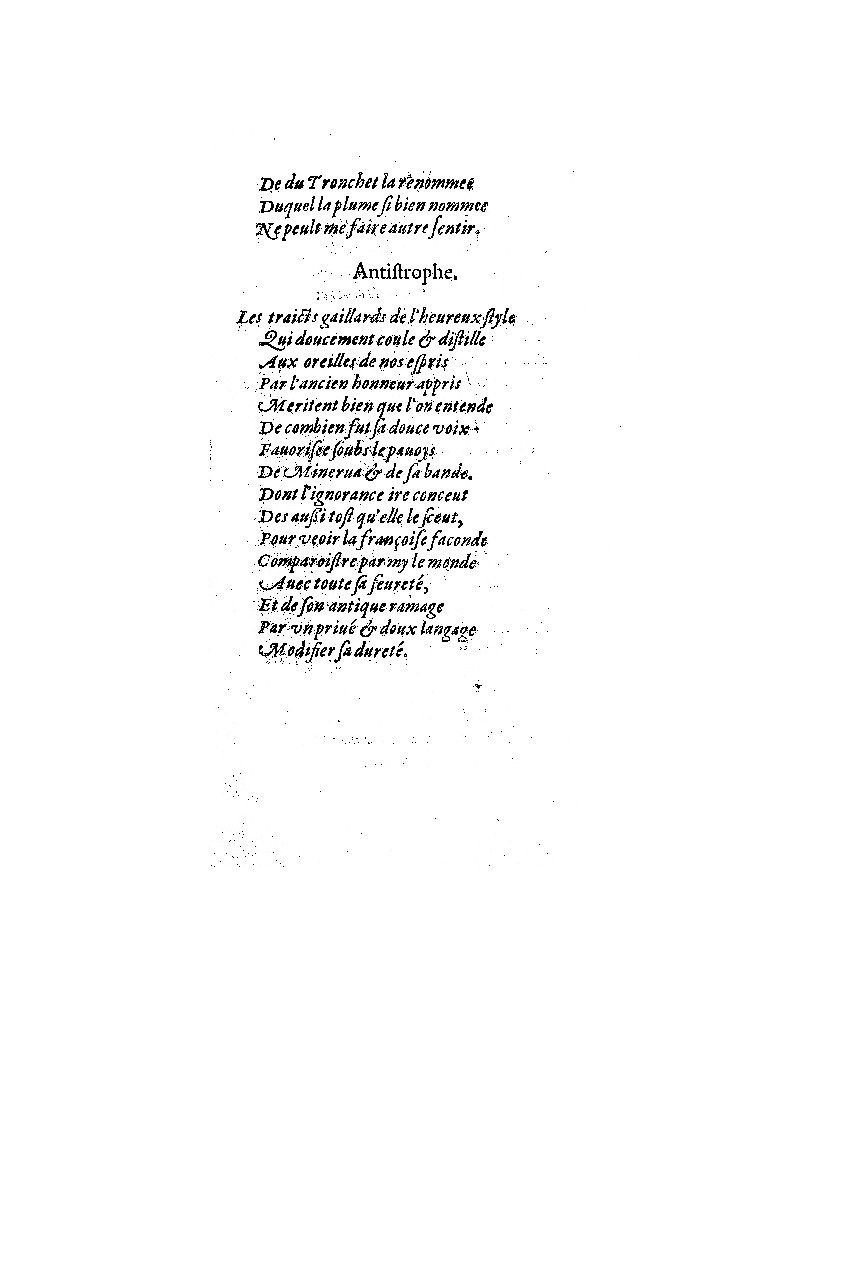 De du Tronchet la renommee
Duquel la plume ſi bien nommee
Ne peult me faire autre ſentir.
Antiſtrophe.
Les traicts gaillards de l'heureux ſtyle
Qui doucement coule & diſtille
Aux oreilles de nos eſpris
Par l'ancien honneur appris
Meritent bien que l'on entende
De combien fut ſa douce voix
Fauoriſee ſoubs le pauois
De Minerua & de ſa bande.
Dont l'ignorance ire conceut
Des auſſi toſt qu'elle le ſceut,
Pour veoir la françoiſe faconde
Comparoiſtre par my le monde
Auec toute ſa ſeureté,
Et de ſon antique ramage
Par vn priué & doux langage
Modifier ſa dureté.